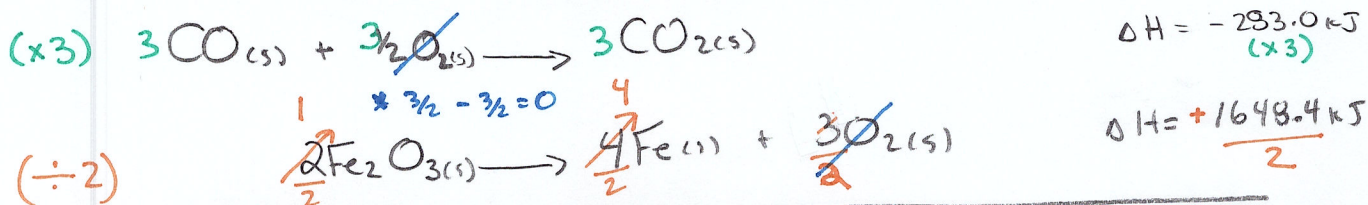 (x3) 3CO(s) + 3/2O2(s) → 3CO2(s) ΔH = -283.0 kJ
(x3)
* 3/2 - 3/2 = 0
1 4
(÷2) 2Fe2O3(s) → 4Fe(s) + 3O2(s) ΔH = +1648.4 kJ
2 2 2 2